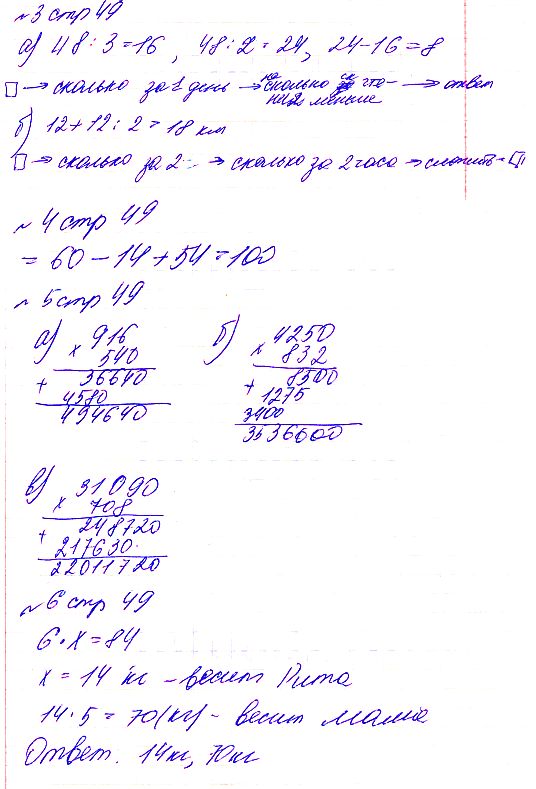 №3 стр 49
а) 48 : 3 = 16 , 48 : 2 = 24, 24 - 16 = 8
□ → сколько за 1 день → на сколько → ответ
меньше
б) 12 + 12 : 2 = 18 км
□ → сколько за 2 → сколько за 2 часа → сложить → □
№4 стр 49
= 60 - 14 + 54 = 100
№5 стр 49
а) 916
× 540
+ 36640
4580
494640
б) 4250
× 832
+ 8500
1275
3400
3536000
в) 31090
× 708
+ 248720
217630
22011720
№6 стр 49
6 · х = 84
х = 14 кг - весит Рита
14 · 5 = 70 (кг) - весит мама
Ответ. 14 кг, 70 кг